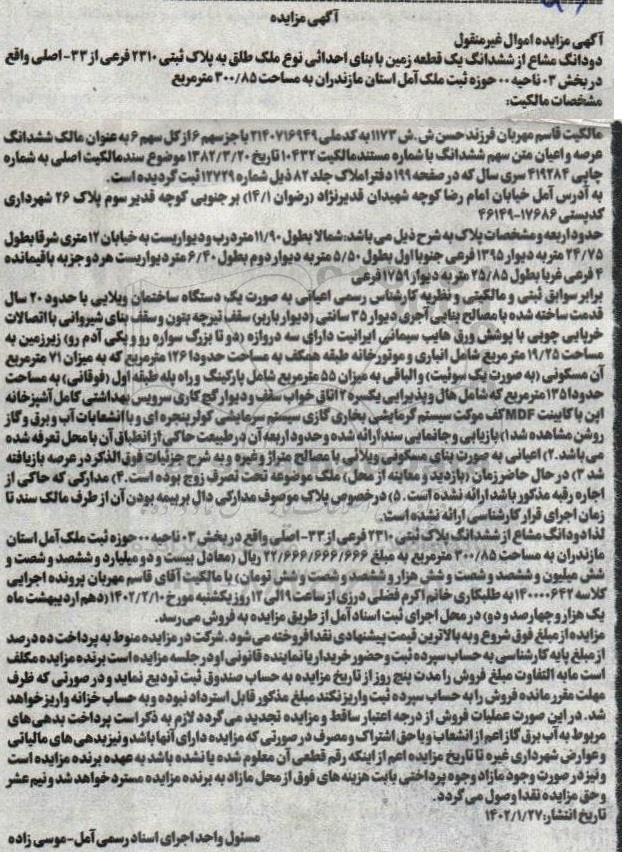 آگهی مزایده
آگهی مزایده اموال غیرمنقول
دودانگ مشاع از ششدانگ یک قطعه زمین با بنای احداثی نوع ملک طلق به پلاک ثبتی ۲۳۱۰ فرعی از ۳۳- اصلی واقع
در بخش ۰۳ ناحیه ۰۰ حوزه ثبت ملک آمل استان مازندران به مساحت ۳۰۰/۸۵ مترمربع
مشخصات مالکیت:
مالکیت قاسم مهربان فرزند حسن ش.ش ۱۱۷۳ به کدملی ۲۱۴۰۷۱۶۹۴۹ با جز سهم ۶ از کل سهم ۶ به عنوان مالک ششدانگ
عرصه و اعیان متن سهم ششدانگ با شماره مستند مالکیت ۱۰۴۳۲ تاریخ ۱۳۸۲/۳/۲۰ موضوع سند مالکیت اصلی به شماره
چاپی ۴۱۹۲۸۴ سری سال که در صفحه ۱۹۹ دفتر املاک جلد ۸۲ ذیل شماره ۱۲۷۲۹ ثبت گردیده است.
به آدرس آمل خیابان امام رضا کوچه شهیدان قدیرنژاد (رضوان ۱۴/۱) بر جنوبی کوچه قدیر سوم پلاک ۲۶ شهرداری
کدپستی ۱۷۶۸۶-۴۶۱۴۹
حدود اربعه و مشخصات پلاک به شرح ذیل می باشد: شمالا بطول ۱۱/۹۰ متر درب و دیواریست به خیابان ۱۲ متری شرقا بطول
۲۴/۷۵ متر به دیوار ۱۳۹۵ فرعی جنوبا اول بطول ۵/۵۰ متر به دیوار دوم بطول ۶/۴۰ متر دیواریست هر دو جز به باقیمانده
۴ فرعی غربا بطول ۲۵/۸۵ متر به دیوار ۱۷۵۹ فرعی
برابر سوابق ثبتی و مالکیتی و نظریه کارشناس رسمی اعیانی به صورت یک دستگاه ساختمان ویلایی با حدود ۲۰ سال
قدمت ساخته شده با مصالح بنایی آجری دیوار ۳۵ سانتی (دیوار باربر) سقف تیرچه بتون و سقف بنای شیروانی با اتصالات
خرپایی چوبی با پوشش ورق هایپ سیمانی ایرانیت دارای سه دروازه (دو تا بزرگ سواره رو و یکی آدم رو) زیرزمین به
مساحت ۱۹/۲۵ متر مربع شامل انباری و موتورخانه طبقه همکف به مساحت حدودا ۱۲۶ مترمربع که به میزان ۷۱ مترمربع
آن مسکونی (به صورت یک سوئیت) و الباقی به میزان ۵۵ مترمربع شامل پارکینگ و راه پله طبقه اول (فوقانی) به مساحت
حدودا ۱۳۵ مترمربع که شامل هال و پذیرایی یکسره ۲ اتاق خواب سقف و دیوار گچ کاری سرویس بهداشتی کامل آشپزخانه
اپن با کابینت MDF کف موکت سیستم گرمایشی بخاری گازی سیستم سرمایشی کولر پنجره ای و با انشعابات آب و برق و گاز
روشن مشاهده شد ۱) بازیابی و جانمایی سند ارائه شده و حدود اربعه آن در طبیعت حاکی از انطباق آن با محل تعرفه شده
می باشد. ۲) اعیانی به صورت بنای مسکونی ویلائی با مصالح متراژ و غیره و به شرح جزئیات فوق الذکر در عرصه باز یافته
شد ۳) در حال حاضر زمان (بازدید و معاینه از محل) ملک موضوعه تحت تصرف زوج بوده است. ۴) مدارکی که حاکی از
اجاره رقبه مذکور باشد ارائه نشده است. ۵) در خصوص پلاک موصوف مدارکی دال بر بیمه بودن آن از طرف مالک سند تا
زمان اجرای قرار کارشناسی ارائه نشده است.
لذا دودانگ مشاع از ششدانگ پلاک ثبتی ۲۳۱۰ فرعی از ۳۳- اصلی واقع در بخش ۰۳ ناحیه ۰۰ حوزه ثبت ملک آمل استان
مازندران به مساحت ۳۰۰/۸۵ مترمربع به مبلغ ۲۲/۶۶۶/۶۶۶/۶۶۶ ریال (معادل بیست و دو میلیارد و ششصد و شصت و
شش میلیون و ششصد و شصت و شش هزار و ششصد و شصت و شش تومان) با مالکیت آقای قاسم مهربان پرونده اجرایی
کلاسه ۱۴۰۰۰۰۶۴۲ به طلبکاری خانم اکرم فضلی درزی از ساعت ۹ الی ۱۲ روز یکشنبه مورخ ۱۴۰۲/۲/۱۰ (دهم اردیبهشت ماه
یک هزار و چهارصد و دو) در محل اجرای ثبت اسناد آمل از طریق مزایده به فروش می رسد.
مزایده از مبلغ فوق شروع و به بالاترین قیمت پیشنهادی نقدا فروخته می شود. شرکت در مزایده منوط به پرداخت ده درصد
از مبلغ پایه کارشناسی به حساب سپرده ثبت و حضور خریدار یا نماینده قانونی او در جلسه مزایده است برنده مزایده مکلف
است مابه التفاوت مبلغ فروش را مدت پنج روز از تاریخ مزایده به حساب صندوق ثبت تودیع نماید و در صورتی که ظرف
مهلت مقرر مانده فروش را به حساب سپرده ثبت واریز نکند مبلغ مذکور قابل استرداد نبوده و به حساب خزانه واریز خواهد
شد. در این صورت عملیات فروش از درجه اعتبار ساقط و مزایده تجدید می گردد لازم به ذکر است پرداخت بدهی های
مربوط به آب برق گاز اعم از انشعاب و یا حق اشتراک و مصرف در صورتی که مزایده دارای آنها باشد و نیز بدهی های مالیاتی
و عوارض شهرداری غیره تا تاریخ مزایده اعم از اینکه رقم قطعی آن معلوم شده یا نشده باشد به عهده برنده مزایده است
و نیز در صورت وجود مازاد وجوه پرداختی بابت هزینه های فوق از محل مازاد به برنده مزایده مسترد خواهد شد و نیم عشر
و حق مزایده نقدا وصول می گردد.
تاریخ انتشار: ۱۴۰۲/۱/۲۷
مسئول واحد اجرای اسناد رسمی آمل-موسی زاده